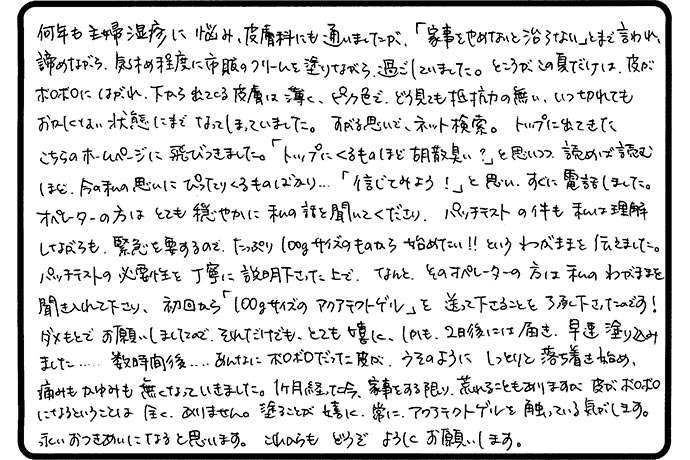 何年も主婦湿疹に悩み、皮膚科にも通いましたが、「家事をやめないと治らない」とまで言われ、
諦めながら、気休め程度に市販のクリームを塗りながら、過ごしていました。ところがこの夏だけは、皮が
ボロボロにはがれ、下から出てくる皮膚は薄く、ピンク色で、どう見ても抵抗力の無い、いつ切れても
おかしくない状態にまでなってしまっていました。すがる思いで、ネット検索。トップに出てきた
こちらのホームページに飛びつきました。「トップにくるものほど胡散臭い？」と思いつつ、読めば読む
ほど、今の私の思いにぴったりくるものばかり…「信じてみよう！」と思い、すぐに電話しました。
オペレーターの方はとても穏やかに私の話を聞いてくださり、パッチテストの件も私は理解
しながらも、緊急を要するので、たっぷり100gサイズのものから始めたい!!というわがままを伝えました。
パッチテストの必要性を丁寧に説明下さった上で、なんと、そのオペレーターの方は私のわがままを
聞き入れて下さり、初回から「100gサイズのアクアテクトゲル」を送って下さることを了承下さったのです！
ダメもとでお願いしましたので、それだけでも、とても嬉しく、しかも、2日後には届き、早速塗り込み
ました……数時間後……あんなにボロボロだった皮が、うそのようにしっとりと落ち着き始め、
痛みもかゆみも無くなっていきました。1ヶ月経った今、家事をする限り、荒れることもありますが、皮がボロボロ
になるということは全く、ありません。塗ることが嬉しく、常に、アクアテクトゲルを触っている気がします。
永いおつきあいになると思います。これからもどうぞよろしくお願いします。